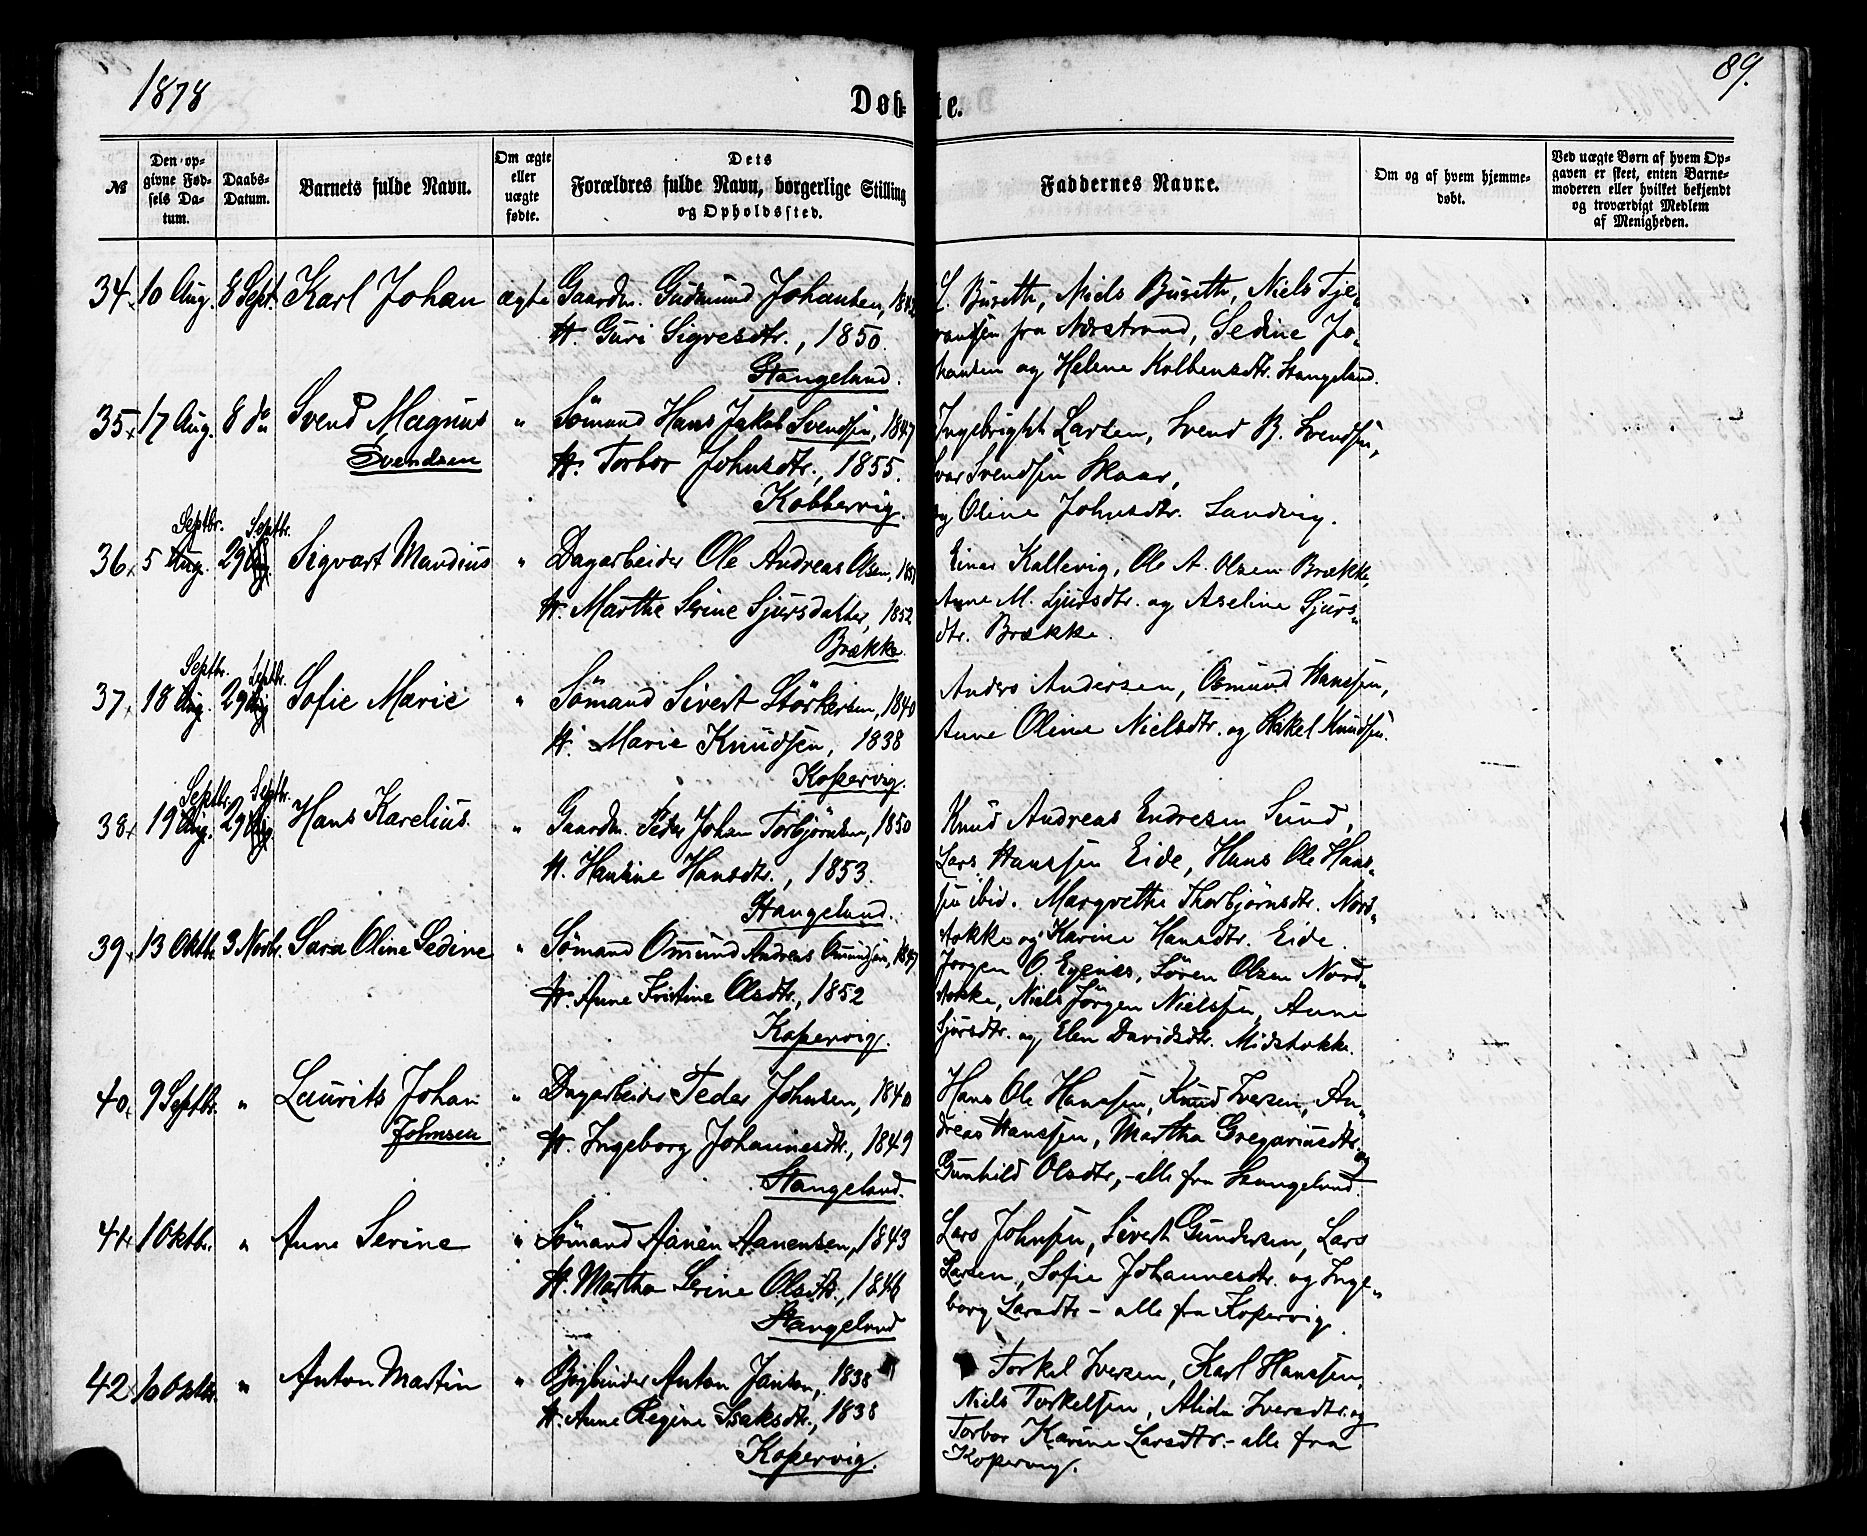 1878
89.
Døbte.
№
Den opgivne Fødsels Datum.
Daabs-Datum.
Barnets fulde Navn.
Om ægte eller uægte fødte.
Dets Forældres fulde Navn, borgerlige Stilling og Opholdssted.
Faddernes Navne.
Om og af hvem hjemmedøbt.
Ved uægte Børn af hvem Opgaven er skeet, enten Barnemoderen eller hvilket bekjendt og troværdigt Medlem af Menigheden.
34 10 Aug. 8 Sept. Karl Johan ægte Gaardm. Gudmund Johansen, 1842
H. Guri Sigvesdtr., 1850.
Stangeland.
Buseth, Niels Buseth, Niels Tje-
ransen fra Nærstrand, Sedine Jo-
hansen og Helene Kolbensdtr. Stangeland.
35 17 Aug. 8 do Svend Magnus Svendsen " Sømand Hans Jakob Svendsen, 1847
H. Torbor Johnsdtr., 1855.
Kobbervig.
Ingebrigt Larsen, Svend B. Svendsen,
Ivar Svendsen Skaar,
og Oline Johnsdtr. Sandvig.
36 5 Septbr. 29 Septbr. Sigvart Mandius " Dagarbeider Ole Andreas Olsen,
H. Marthe Serine Sjursdatter, 1852
Brække
Einar Kallevig, Ole A. Olsen Brække,
Anne M. Sjursdtr. og Aseline Sjurs-
dtr. Brække.
37 18 Septbr. 29 Septbr. Sofie Marie " Sømand Sivert Störkersen, 1840
H. Marie Knudsen, 1838
Kopervig.
Andr. Andersen, Osmund Hanssen,
Anne Oline Nielsdtr. og Rakel Knudsen.
38 19 Septbr. 29 Septbr. Hans Karelius. " Gaardm. Peder Johan Torbjörnsen, 1850
H. Hansine Hansdtr., 1853.
Stangeland.
Knud Andreas Endresen Sund,
Lars Hanssen Eide, Hans Ole Hans-
sen ibid. Margrethe Thorbjörnsdtr. Nord-
stokke og Karine Hansdtr. Eide.
39 13 Oktbr. 3 Novbr. Sara Oline Sedine " Sømand Omund Andreas Omundsen, 1847
H. Anne Kristine Olsdtr., 1852
Kopervig.
Jørgen O. Eyenes, Sören Olsen Nord-
stokke, Niels Jörgen Nielsen, Anne
Sjursdtr. og Elen Davidsdtr. Midstokke.
40 9 Septbr. " Laurits Johan Johnsen " Dagarbeider Peder Johnsen, 1840
H. Ingeborg Johannesdtr., 1849
Stangeland.
Hans Ole Hanssen, Knud Iversen, An-
dreas Hanssen, Martha Gregariusdtr. og
Gunhild Olsdtr., - alle fra Stangeland.
41 1 Oktbr. " Anne Serine " Sømand Aanen Aanensen, 1843
H. Martha Serine Olsdtr., 1846
Stangeland
Lars Johnsen, Sivert Gundersen, Lars
Larsen, Sofie Johannesdtr. og Inge-
borg Larsdtr - alle fra Kopervig.
42 10 Oktbr. " Anton Martin " Bogbinder Anton Janson, 1838
H. Anne Regine Isaksdtr., 1838
Kopervig.
Torkel Iversen, Karl Hanssen,
Niels Torkelsen, Alida Iversdtr. og
Torbor Karine Larsdtr. - alle fra
Kopervig.